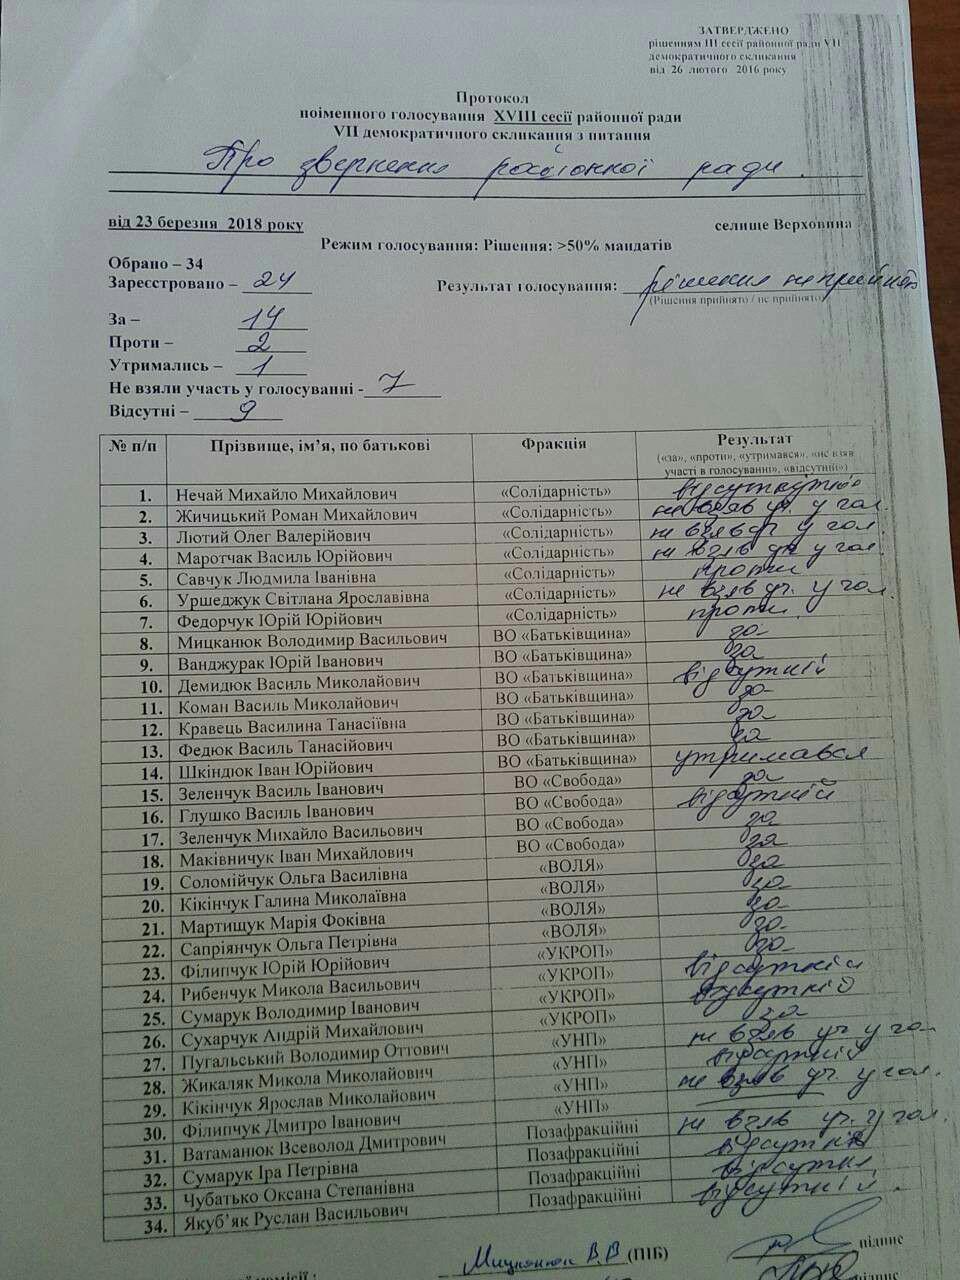 ЗАТВЕРДЖЕНО
рішенням ІІІ сесії районної ради VII
демократичного скликання
від 26 лютого 2016 року
Протокол
поіменного голосування XVIII сесії районної ради
VII демократичного скликання з питання
Про звернення районної ради.
від 23 березня 2018 року селище Верховина
Режим голосування: Рішення: >50% мандатів
Обрано – 34
Зареєстровано – 24 Результат голосування: рішення не прийнято
(Рішення прийнято / не прийнято)
За – 14
Проти – 2
Утримались – 1
Не взяли участь у голосуванні - 7
Відсутні – 9
№ п/п Прізвище, ім’я, по батькові Фракція Результат
(«за», «проти», «утримався», «не взяв
участі в голосуванні», «відсутній»)
1. Нечай Михайло Михайлович «Солідарність» відсутній
2. Жичицький Роман Михайлович «Солідарність» не взяв уч. у гол.
3. Лютий Олег Валерійович «Солідарність» не взяв уч. у гол.
4. Маротчак Василь Юрійович «Солідарність» не взяв уч. у гол.
5. Савчук Людмила Іванівна «Солідарність» проти
6. Уршеджук Світлана Ярославівна «Солідарність» не взяв уч. у гол.
7. Федорчук Юрій Юрійович «Солідарність» проти.
8. Мицканюк Володимир Васильович ВО «Батьківщина» за
9. Ванджурак Юрій Іванович ВО «Батьківщина» за
10. Демидюк Василь Миколайович ВО «Батьківщина» відсутній
11. Коман Василь Миколайович ВО «Батьківщина» за
12. Кравець Василина Танасіївна ВО «Батьківщина» за
13. Федюк Василь Танасійович ВО «Батьківщина» за
14. Шкіндюк Іван Юрійович ВО «Батьківщина» утримався
15. Зеленчук Василь Іванович ВО «Свобода» за
16. Глушко Василь Іванович ВО «Свобода» відсутній
17. Зеленчук Михайло Васильович ВО «Свобода» за
18. Маківничук Іван Михайлович ВО «Свобода» за
19. Соломійчук Ольга Василівна «ВОЛЯ» за
20. Кікінчук Галина Миколаївна «ВОЛЯ» за
21. Мартищук Марія Фоківна «ВОЛЯ» за
22. Сапріянчук Ольга Петрівна «ВОЛЯ» за
23. Філипчук Юрій Юрійович «УКРОП» за
24. Рибенчук Микола Васильович «УКРОП» відсутній
25. Сумарук Володимир Іванович «УКРОП» відсутній
26. Сухарчук Андрій Михайлович «УКРОП» за
27. Пугальський Володимир Оттович «УНП» не взяв уч. у гол.
28. Жикаляк Микола Миколайович «УНП» відсутній
29. Кікінчук Ярослав Миколайович «УНП» не взяв уч. у гол.
30. Філипчук Дмитро Іванович «УНП»
31. Ватаманюк Всеволод Дмитрович Позафракційні не взяв уч. у гол.
32. Сумарук Іра Петрівна Позафракційні відсутній
33. Чубатько Оксана Степанівна Позафракційні відсутня
34. Якуб’як Руслан Васильович Позафракційні відсутній.
Мицканюк В.В (ПІБ) підпис
комісії :